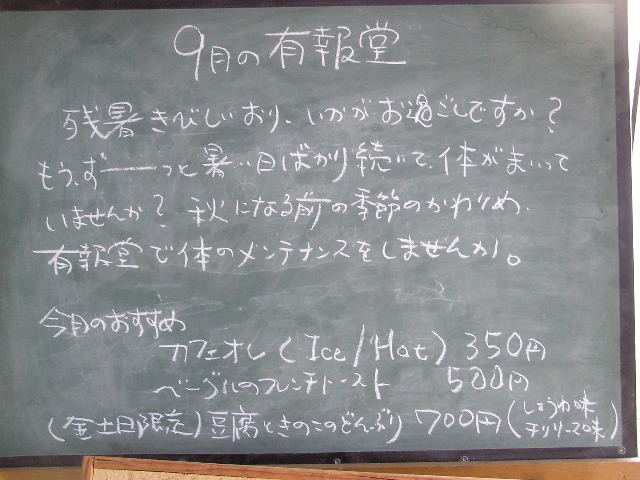 9月の有報堂
残暑きびしいおり、いかがお過ごしですか?
もう、ず――っと暑い日ばかり続いて、体がまいって
いませんか? 秋になる前の季節のかわりめ、
有報堂で体のメンテナンスをしませんか。
今月のおすすめ
カフェオレ (Ice/Hot) 350円
ベーグルのフレンチトースト 500円
(金土日限定) 豆腐ときのこのどんぶり 700円 (しょうゆ味
チリソース味)